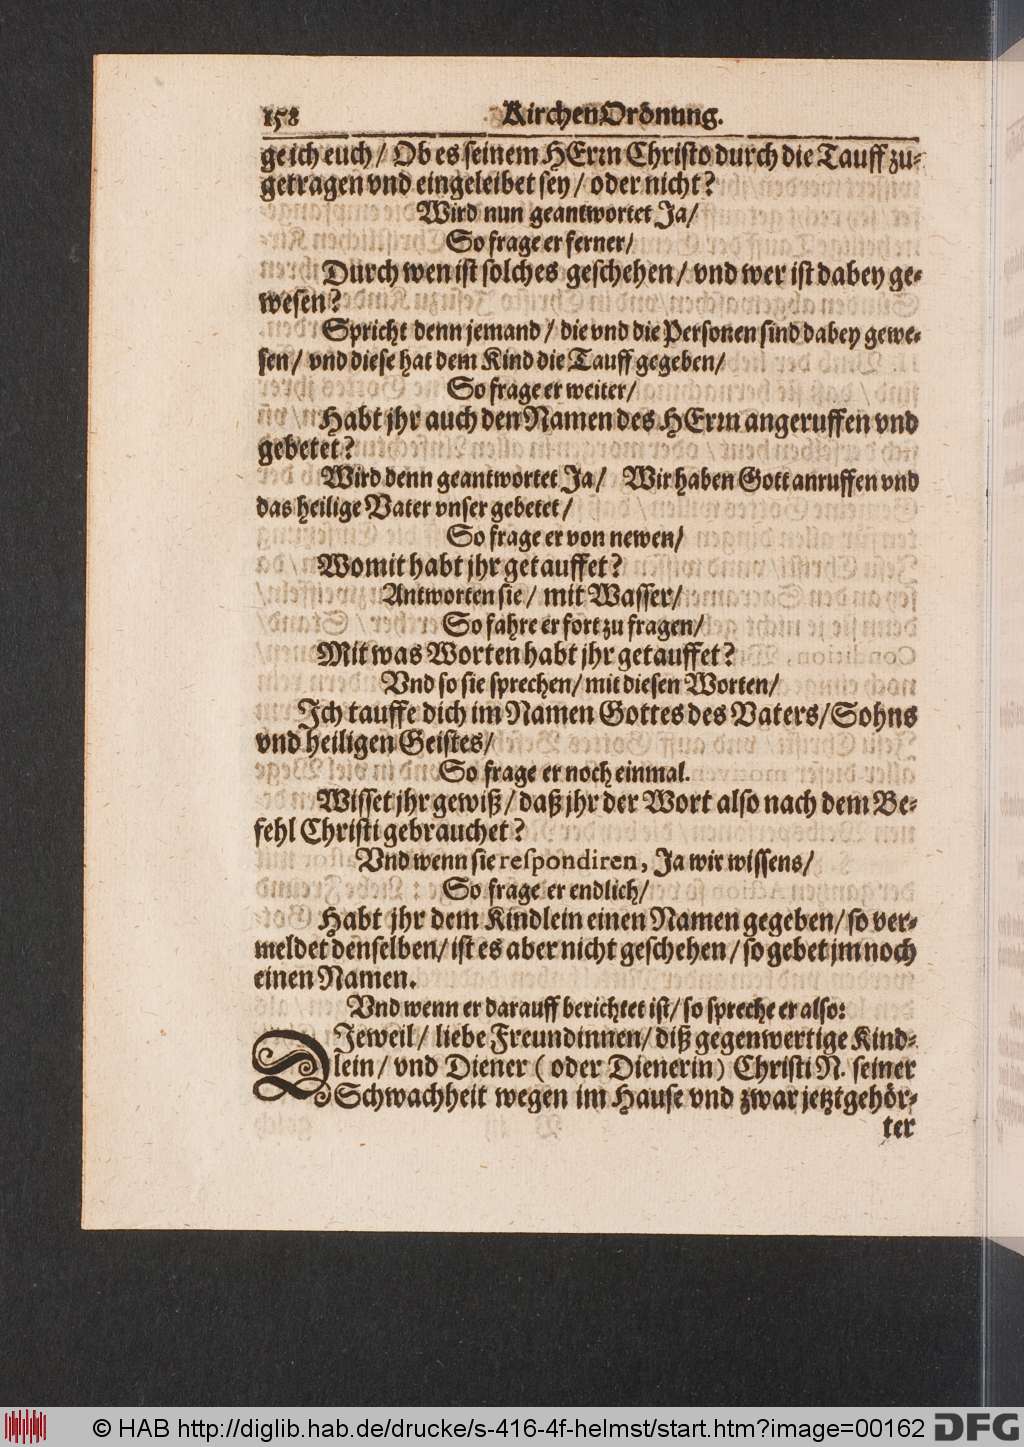 158 KirchenOrdnung.
ge ich euch / Ob es seinem HErrn Christo durch die Tauff zu-
getragen vnd eingeleibet sey / oder nicht?
Wird nun geantwortet Ja /
So frage er ferner /
Durch wen ist solches geschehen / vnd wer ist dabey ge-
wesen?
Spricht denn jemand / die vnd die Personen sind dabey gewe-
sen / vnd diese hat dem Kind die Tauff gegeben /
So frage er weiter /
Habt jhr auch den Namen des HErrn angeruffen vnd
gebetet?
Wird denn geantwortet Ja / Wir haben Gott anruffen vnd
das heilige Vater vnser gebetet /
So frage er von newen /
Womit habt jhr getauffet?
Antworten sie / mit Wasser /
So fahre er fort zu fragen /
Mit was Worten habt jhr getauffet?
Vnd so sie sprechen / mit diesen Worten /
Ich tauffe dich im Namen Gottes des Vaters / Sohns
vnd heiligen Geistes /
So frage er noch einmal.
Wisset jhr gewiß / daß jhr der Wort also nach dem Be-
fehl Christi gebrauchet?
Vnd wenn sie respondiren, Ja wir wissens /
So frage er endlich /
Habt jhr dem Kindlein einen Namen gegeben / so ver-
meldet denselben / ist es aber nicht geschehen / so gebet jm noch
einen Namen.
Vnd wenn er darauff berichtet ist / so spreche er also:
DJeweil / liebe Freundinnen / diß gegenwertige Kind-
lein / vnd Diener ( oder Dienerin ) Christi N. seiner
Schwachheit wegen im Hause vnd zwar jetztgehör-
ter
© HAB http://diglib.hab.de/drucke/s-416-4f-helmst/start.htm?image=00162 DFG